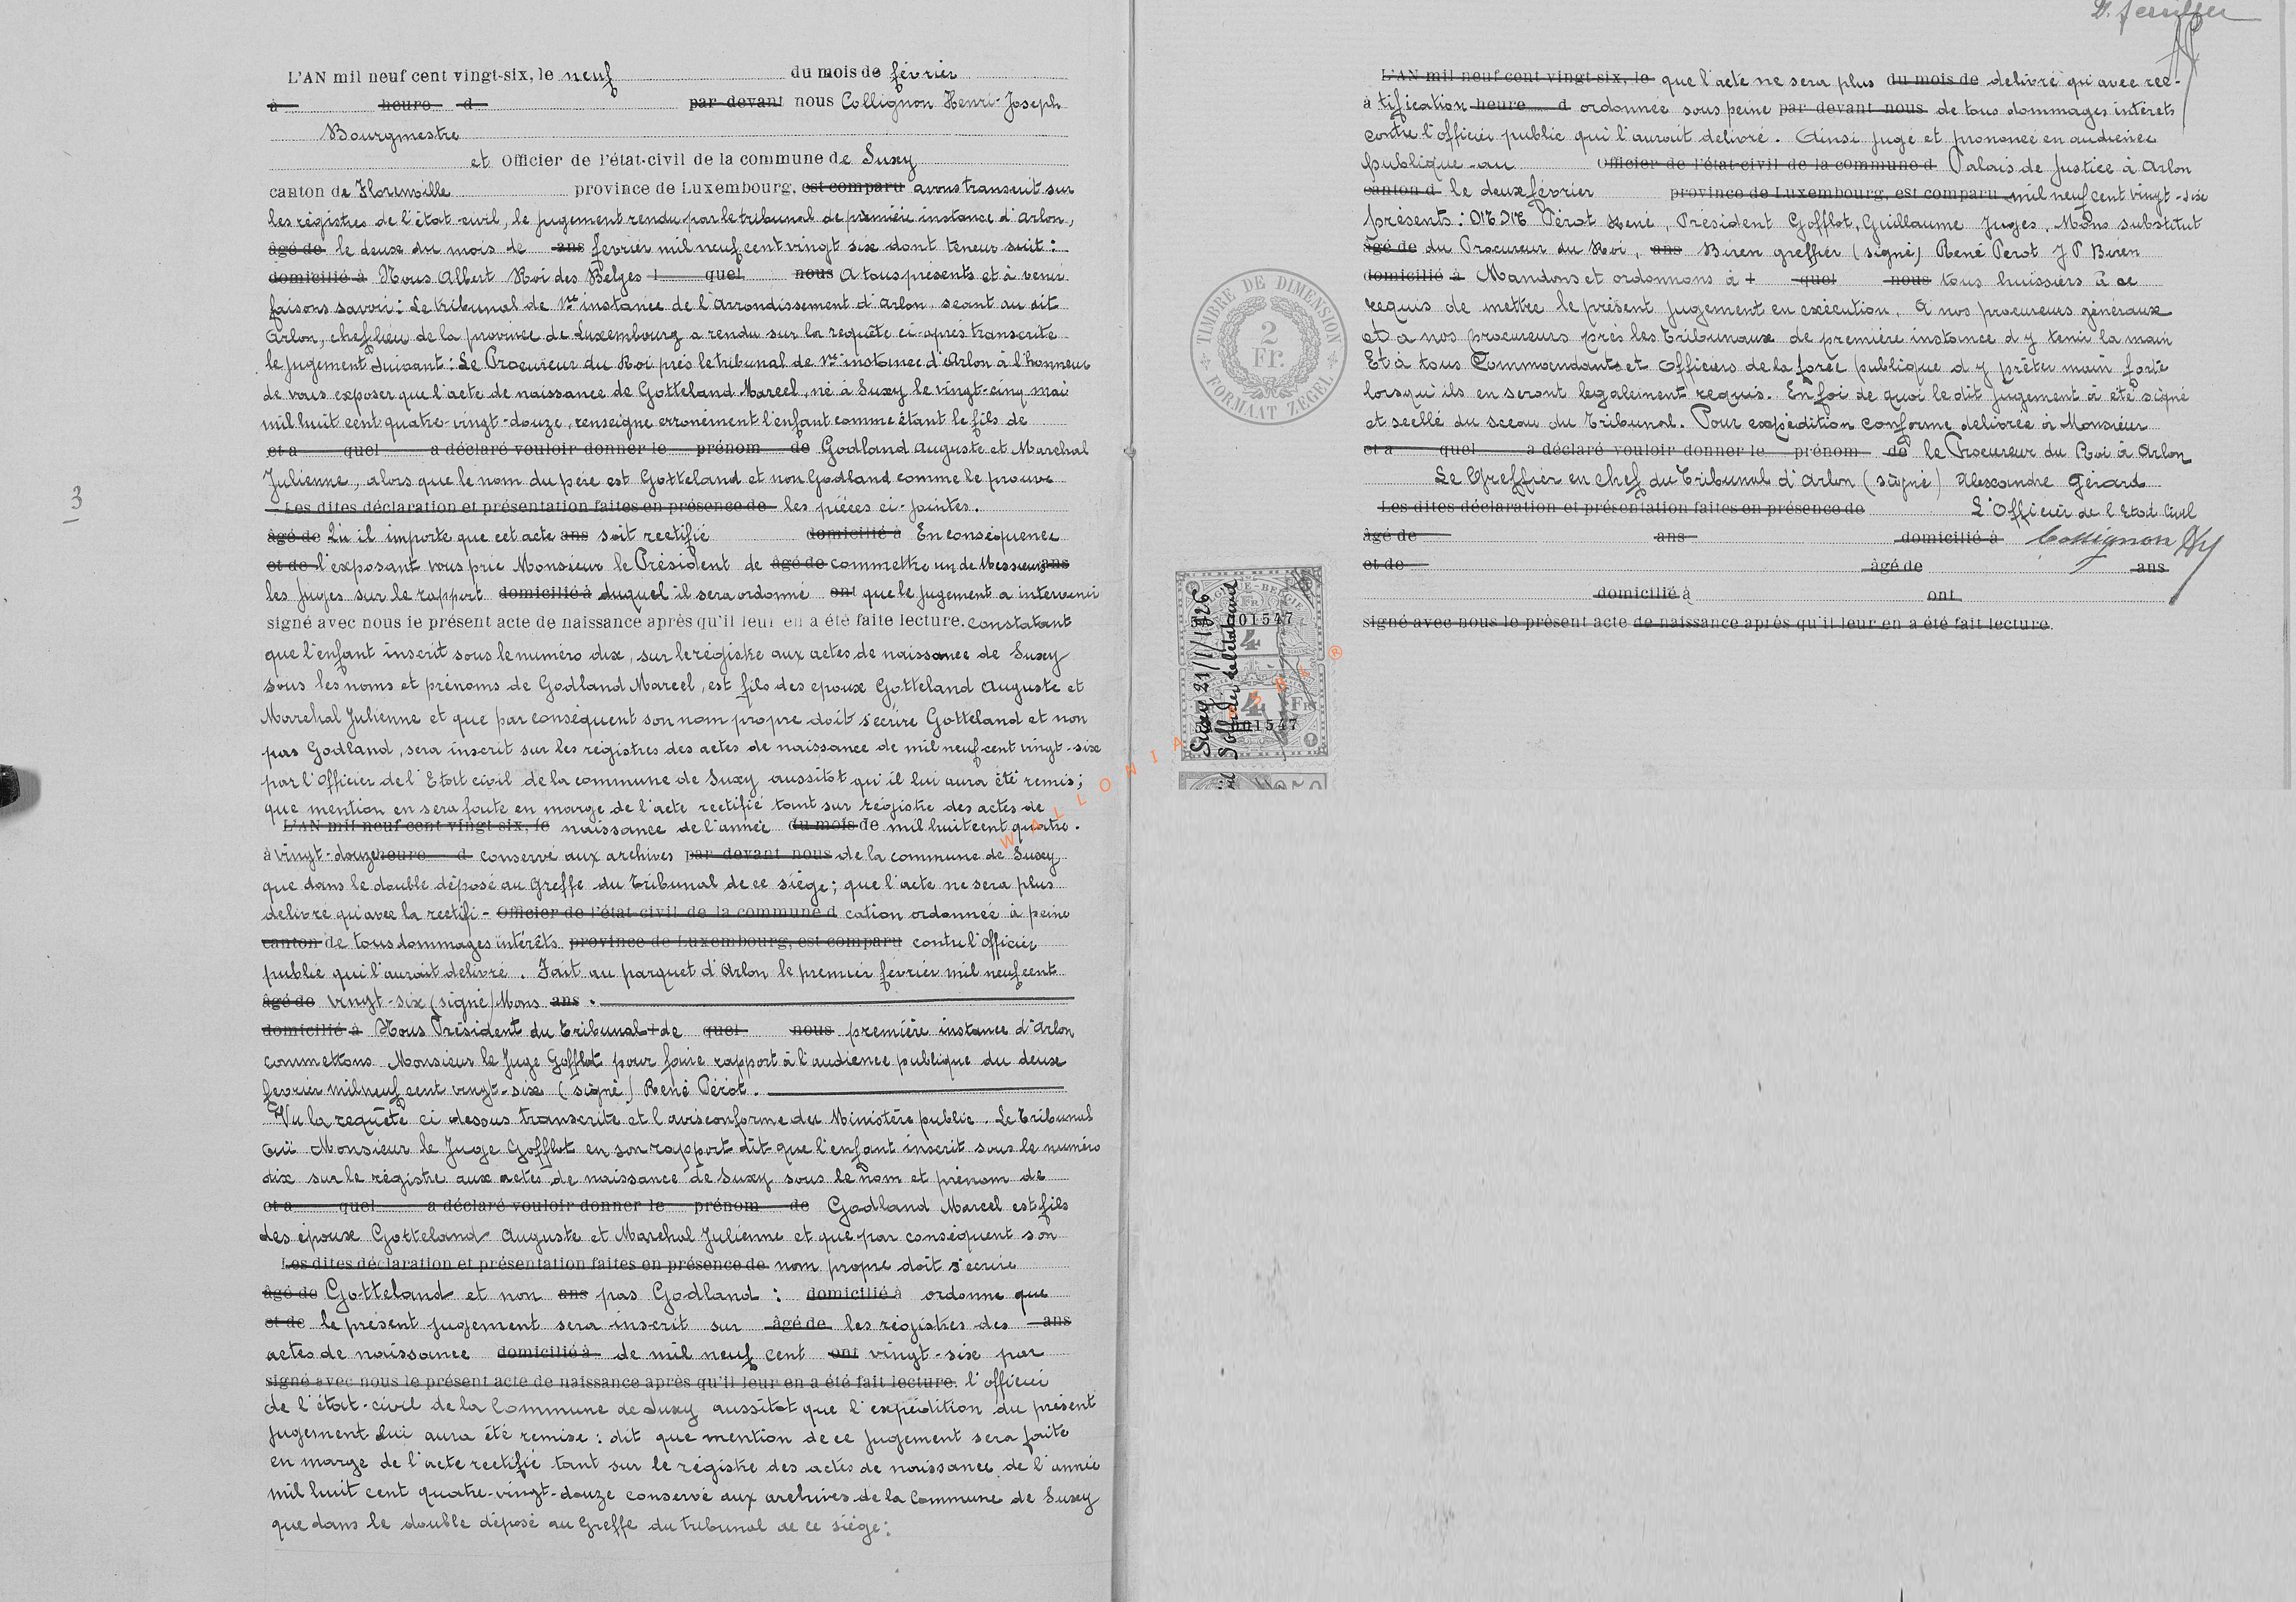 L'AN mil neuf cent vingt-six, le neuf du mois de février
à heure d par devant nous Collignon Henri-Joseph
Bourgmestre
et Officier de l'état-civil de la commune de Suxy
canton de Florenville province de Luxembourg, est comparu avons transcrit sur
les régistres de l'état-civil, le jugement rendu par le tribunal de première instance d'Arlon,
âgé de le deux du mois de ans février mil neuf cent vingt six dont teneur suit :
domicilié à Nous Albert Roi des Belges l quel nous A tous présents et à venir
faisons savoir : Le tribunal de 1re instance de l'arrondissement d'Arlon, séant au dit
Arlon, chef lieu de la province de Luxembourg a rendu sur la requête ci-après transcrite
le jugement suivant : Le Procureur du Roi près le tribunal de 1re instance d'Arlon à l'honneur
de vous exposer que l'acte de naissance de Gotteland Marcel, né à Suxy le vingt-cinq mai
mil huit cent quatre-vingt-douze, renseigne erronément l'enfant comme étant le fils de
et a quel a déclaré vouloir donner le prénom de Godland Auguste et Marchal
Julienne, alors que le nom du père est Gotteland et non Godland comme le prouve
Les dites déclaration et présentation faites en présence de les pièces ci-jointes.
âgé de Qu'il importe que cet acte ans soit rectifié domicilié à En conséquence
et de l'exposant vous prie Monsieur le Président de âgé de commettre un de Messieurs ans
les Juges sur le rapport domicilié à duquel il sera ordonné ont que le jugement a intervenir
signé avec nous le présent acte de naissance après qu'il leur en a été faite lecture. constatant
que l'enfant inscrit sous le numéro dix, sur le régistre aux actes de naissance de Suxy
sous les noms et prénoms de Godland Marcel, est fils des epoux Gotteland Auguste et
Marchal Julienne et que par conséquent son nom propre doit s'écrire Gotteland et non
pas Godland, sera inscrit sur les régistres des actes de naissance de mil neuf cent vingt-six
par l'Officier de l'Etat civil de la commune de Suxy aussitôt qu'il lui aura été remis ;
que mention en sera faite en marge de l'acte rectifié tant sur régistre des actes de
L'AN mil neuf cent vingt-six, le naissance de l'année du mois de mil huit cent quatre-
à vingt-douze heure d conservé aux archives par devant nous de la commune de Suxy
que dans le double déposé au Greffe du Tribunal de ce siège ; que l'acte ne sera plus
délivré qu'avec la rectifi- Officier de l'état-civil de la commune d cation ordonnée à peine
canton de tous dommages intérêts province de Luxembourg, est comparu contre l'officier
public qui l'aurait délivré. Fait au parquet d'Arlon le premier février mil neuf cent
âgé de vingt-six (signé) Mons ans.
domicilié à Nous Président du Tribunal l de quel nous première instance d'Arlon
commettons Monsieur le Juge Gofflot pour faire rapport à l'audience publique du deux
février mil neuf cent vingt-six (signé) René Pérot.
Vu la requête ci dessus transcrite et l'avis conforme du Ministère public. Le Tribunal
Ouï Monsieur le Juge Gofflot en son rapport dit que l'enfant inscrit sous le numéro
dix sur le régistre aux actes de naissance de Suxy sous le nom et prénom de
et a quel a déclaré vouloir donner le prénom de Godland Marcel est fils
des époux Gotteland Auguste et Marchal Julienne et que par conséquent son
Les dites déclaration et présentation faites en présence de nom propre doit s'écrire
âgé de Gotteland et non ans pas Godland : domicilié à ordonne que
et de le présent jugement sera inscrit sur âgé de les régistres des ans
actes de naissance domicilié à de mil neuf cent ont vingt-six par
signé avec nous le présent acte de naissance après qu'il leur en a été fait lecture. l'officier
de l'état-civil de la Commune de Suxy aussitôt que l'expédition du présent
jugement lui aura été remise : dit que mention de ce jugement sera faite
en marge de l'acte rectifié tant sur le régistre des actes de naissance de l'année
mil huit cent quatre-vingt-douze conservé aux archives de la Commune de Suxy
que dans le double déposé au Greffe du tribunal de ce siège :
3
L'AN mil neuf cent vingt-six, le que l'acte ne sera plus du mois de délivré qu'avec rec-
à tification heure d ordonnée sous peine par devant nous de tous dommages intérêts
contre l'officier public qui l'aurait délivré. Ainsi jugé et prononcé en audience
publique au Officier de l'état-civil de la commune d Palais de Justice à Arlon
canton d le deux février province de Luxembourg, est comparu mil neuf cent vingt-six
présents : MM Pérot René, Président Gofflot, Guillaume Juges, Mons substitut
âgé de du Procureur du Roi, ans Biren greffier (signé) René Perot J P Biren
domicilié à Mandons et ordonnons à l quel nous tous huissiers à ce
requis de mettre le présent jugement en exécution. A nos procureurs généraux
et à nos procureurs près les Tribunaux de première instance d'y tenir la main
Et à tous Commandants et Officiers de la force publique d'y prêter main forte
lorsqu'ils en seront légalement requis. En foi de quoi le dit jugement à été signé
et scellé du sceau du Tribunal. Pour expédition conforme délivrée à Monsieur
et a quel a déclaré vouloir donner le prénom de le Procureur du Roi à Arlon
Le Greffier en chef du Tribunal d'Arlon (signé) Alexandre Gérard
Les dites déclaration et présentation faites en présence de L'Officier de l'Etat Civil
âgé de ans domicilié à Collignon Hy
et de âgé de ans
domicilié à ont
signé avec nous le présent acte de naissance après qu'il leur en a été fait lecture.
TIMBRE DE DIMENSION
2
Fr.
FORMAAT ZEGEL
BELGIE
001547
4
4 Fr
001547
Suxy 21/1/1926
L'officier de l'état civil
WALLONIA